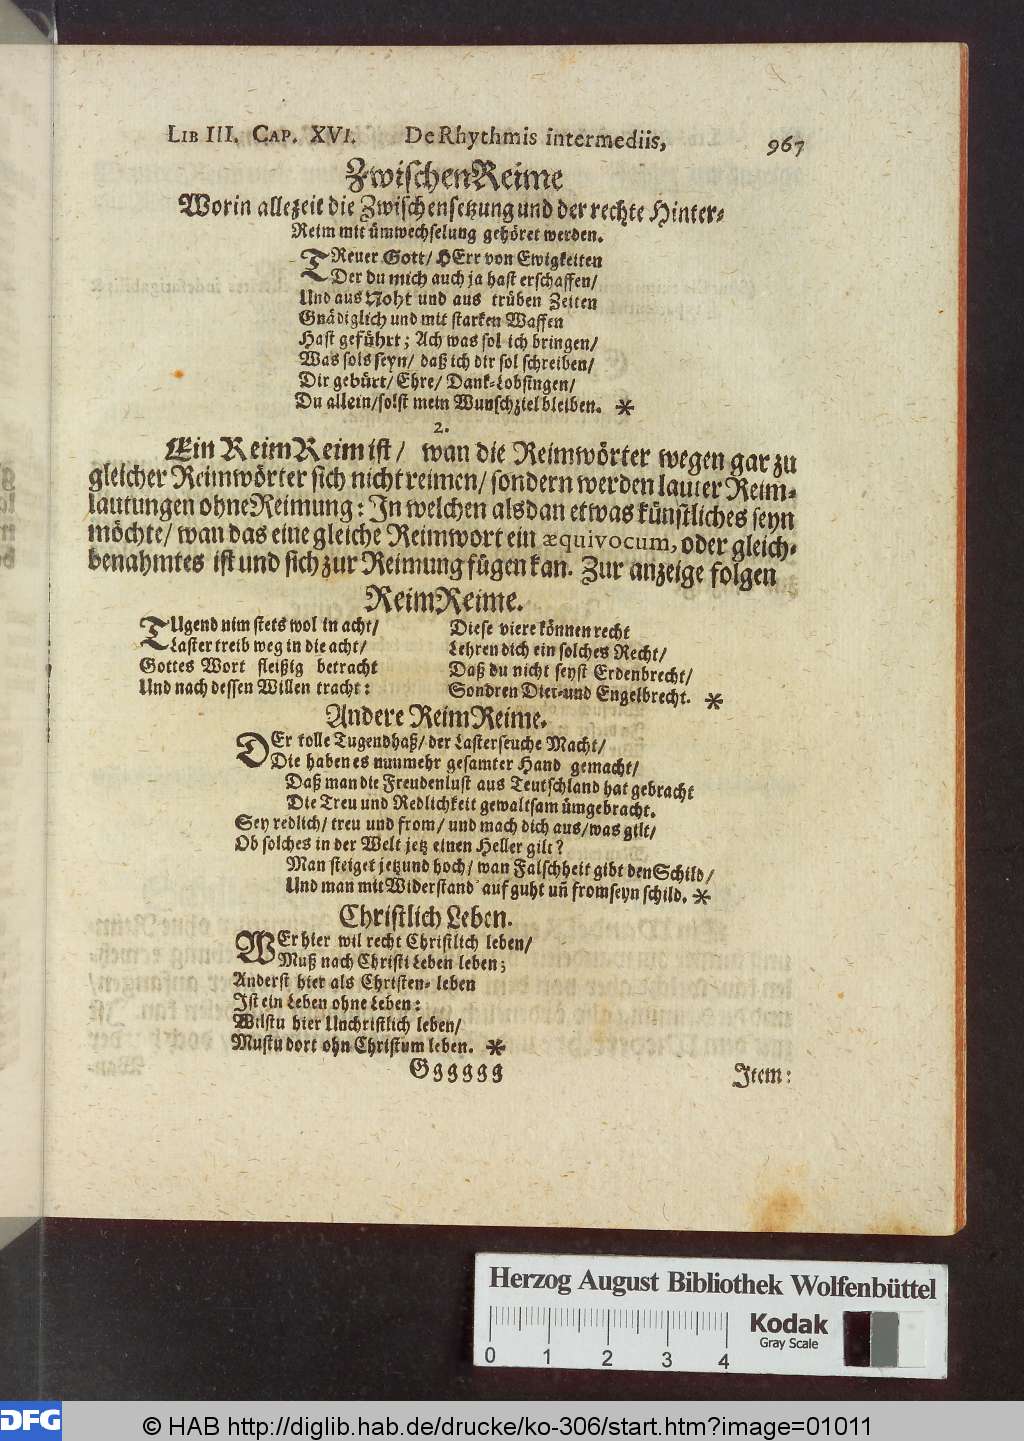 LIB III. CAP. XVI. De Rhythmis intermediis, 967
ZwischenReime
Worin allezeit die Zwischensetzung und der rechte Hinter-
Reim mit ümwechselung gehöret werden.
TReuer Gott/ HErr von Ewigkeiten
Der du mich auch ja hast erschaffen/
Und aus Noht und aus trüben Zeiten
Gnädiglich und mit starken Waffen
Hast geführt; Ach was sol ich bringen/
Was sols seyn/ daß ich dir sol schreiben/
Dir gebürt/ Ehre/ Dank-Lobsingen/
Du allein/ solst mein Wunschziel bleiben. *
2.
Ein ReimReim ist/ wan die Reimwörter wegen gar zu
gleicher Reimwörter sich nicht reimen/ sondern werden lauter Reim-
lautungen ohne Reimung: In welchen alsdan etwas künstliches seyn
möchte/ wan das eine gleiche Reimwort ein æquivocum, oder gleich-
benahmtes ist und sich zur Reimung fügen kan. Zur anzeige folgen
ReimReime.
TUgend nim stets wol in acht/
Laster treib weg in die acht/
Gottes Wort fleißig betracht
Und nach dessen Willen tracht:
Diese viere können recht
Lehren dich ein solches Recht/
Daß du nicht seyst Erdenbrecht/
Sondren Diet-und Engelbrecht. *
Andere ReimReime.
DEr tolle Tugendhaß/ der Lasterseuche Macht/
Die haben es nunmehr gesamter Hand gemacht/
Daß man die Freudenlust aus Teutschland hat gebracht
Die Treu und Redlichkeit gewaltsam ümgebracht.
Sey redlich/ treu und from/ und mach dich aus/ was gilt/
Ob solches in der Welt jetz einen Heller gilt?
Man steiget jetzund hoch/ wan Falschheit gibt den Schild/
Und man mit Widerstand auf guht uñ fromseyn schild. *
Christlich Leben.
WEr hier wil recht Christlich leben/
Muß nach Christi Leben leben;
Anderst hier als Christen- leben
Ist ein Leben ohne Leben:
Wilstu hier Unchristlich leben/
Mustu dort ohn Christum leben. *
Gggggg Item:
Herzog August Bibliothek Wolfenbüttel
0 1 2 3 4
Kodak
Gray Scale
DFG © HAB http://diglib.hab.de/drucke/ko-306/start.htm?image=01011